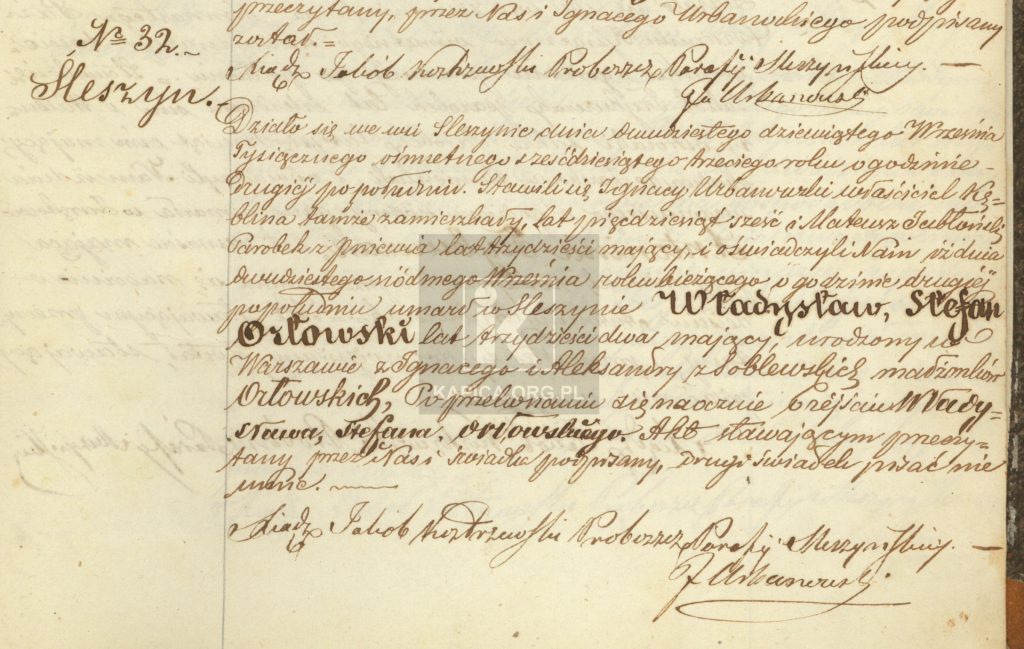 przeczytany, przez Nas i Ignacego Urbanowskiego podpisany
został.=
Nº 32.-
Śleszyn.-
Xiądz Jakób Proboszcz Parafij Śleszyńskiej. —
Ig Urbanowski
Działo się we wsi Śleszynie dnia dwudziestego dziewiątego Września
Tysiącznego ośmsetnego sześćdziesiątego trzeciego roku o godzinie -
drugiéj po południu. Stawili się Ignacy Urbanowski właściciel Kę=
blina tamże zamieszkały, lat pięćdziesiąt sześć i Mateusz Jabłoński
Parobek z Pniewia lat trzydzieści mający, i oświadczyli Nam iż dnia
dwudziestego siódmego Września roku bieżącego o godzinie drugiéj
popołudniu umarł w Śleszynie Władysław, Stefan
Orłowski lat trzydzieści dwa mający, urodzony w
Warszawie z Ignacego i Aleksandry z Soblewskich małżonków
Orłowskich, Po przekonaniu się naocznie o zejściu Włady-
sława, Stefana, Orłowskiego. Akt stawającym przeczy=
tany przez Nas i świadka podpisany, drugi świadek pisać nie
umie.
Xiądz Jakób Proboszcz Parafij Śleszyńskiej. —
J Urbanowski
KAPICA.ORG.PL